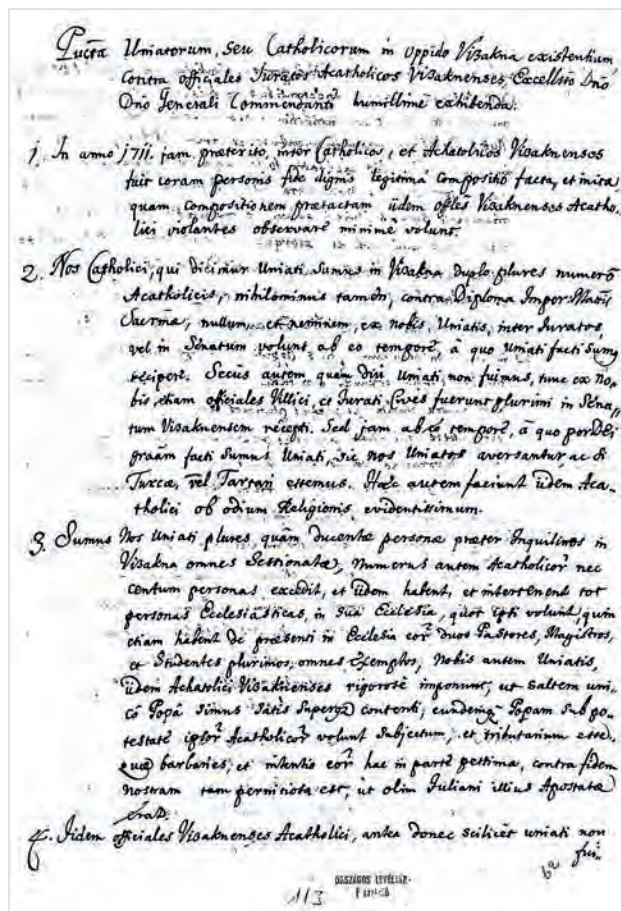 Puncta Uniatorum, seu Catholicorum in Oppido Vizakna existentium
Contra officiales Juratos Acatholicos Vizaknenses Excellmo Dno
Dno Generali Commendanti humillime exhibenda.
1. In anno 1711. jam præterito, inter Catholicos, et Achatolicos Vizaknenses
fuit coram personis fide dignis legitima compositio facta, et inita
quam compositionem prætactam iidem offles Vizaknenses Acatho-
lici violantes observare minime volunt.
2. Nos Catholici, qui dicimur Uniati, sumus in Vizakna duplo plures numero
Acatholicis, nihilominus tamen, contra Diploma Imper: Mattis
Sacrmæ, nullum, et neminem, ex nobis, Uniatis, inter Juratos
vel in Senatum volunt ab eo tempore, à quo Uniati facti sumus
recipere. Secus autem quàm diu Uniati non fuimus, tunc ex no-
bis, etiam officiales Villici, et Jurati Cives fuerunt plurimi in Sena-
tum Vizaknensem recepti. Sed jam ab eo tempore, à quo per DEI
graam facti sumus Uniati, sic nos Uniatos aversantur ac si
Turcæ, vel Tartari essemus. Hæc autem faciunt iidem Aca-
tholici ob odium Religionis evidentissimum.
3. Sumus Nos Uniati plures, quàm ducentæ personæ præter Inquilinos in
Vizakna omnes Sessionatæ, Numerus autem Acatholicor nec
centum personas excedit, et iidem habent, et intertenent tot
personas Ecclesiasticas, in sua Ecclesia, quot ipsi volunt, quin
etiam habent de præsenti in Ecclesia eor duos Pastores, Magistros,
et Studentes plurimos, omnes Exemptos, Nobis autem Uniatis,
iidem Achatolici Vizaknenses rigorose imponunt, ut saltem uni-
co Popa simus satis superq contenti, eundemq Popam sub po-
testate ipsor Acatholicor volunt subjectum, et tributarium esse.
Quæ barbaries, et intentio eor hac in parte pessima, contra fidem
nostram tam perniciosa est, ut olim Juliani illius Apostatæ
erat.
4. Iidem officiales Vizaknenses Acatholici, antea donec scilicet uniati non
fui-
6a
113
ORSZÁGOS LEVÉLTÁR